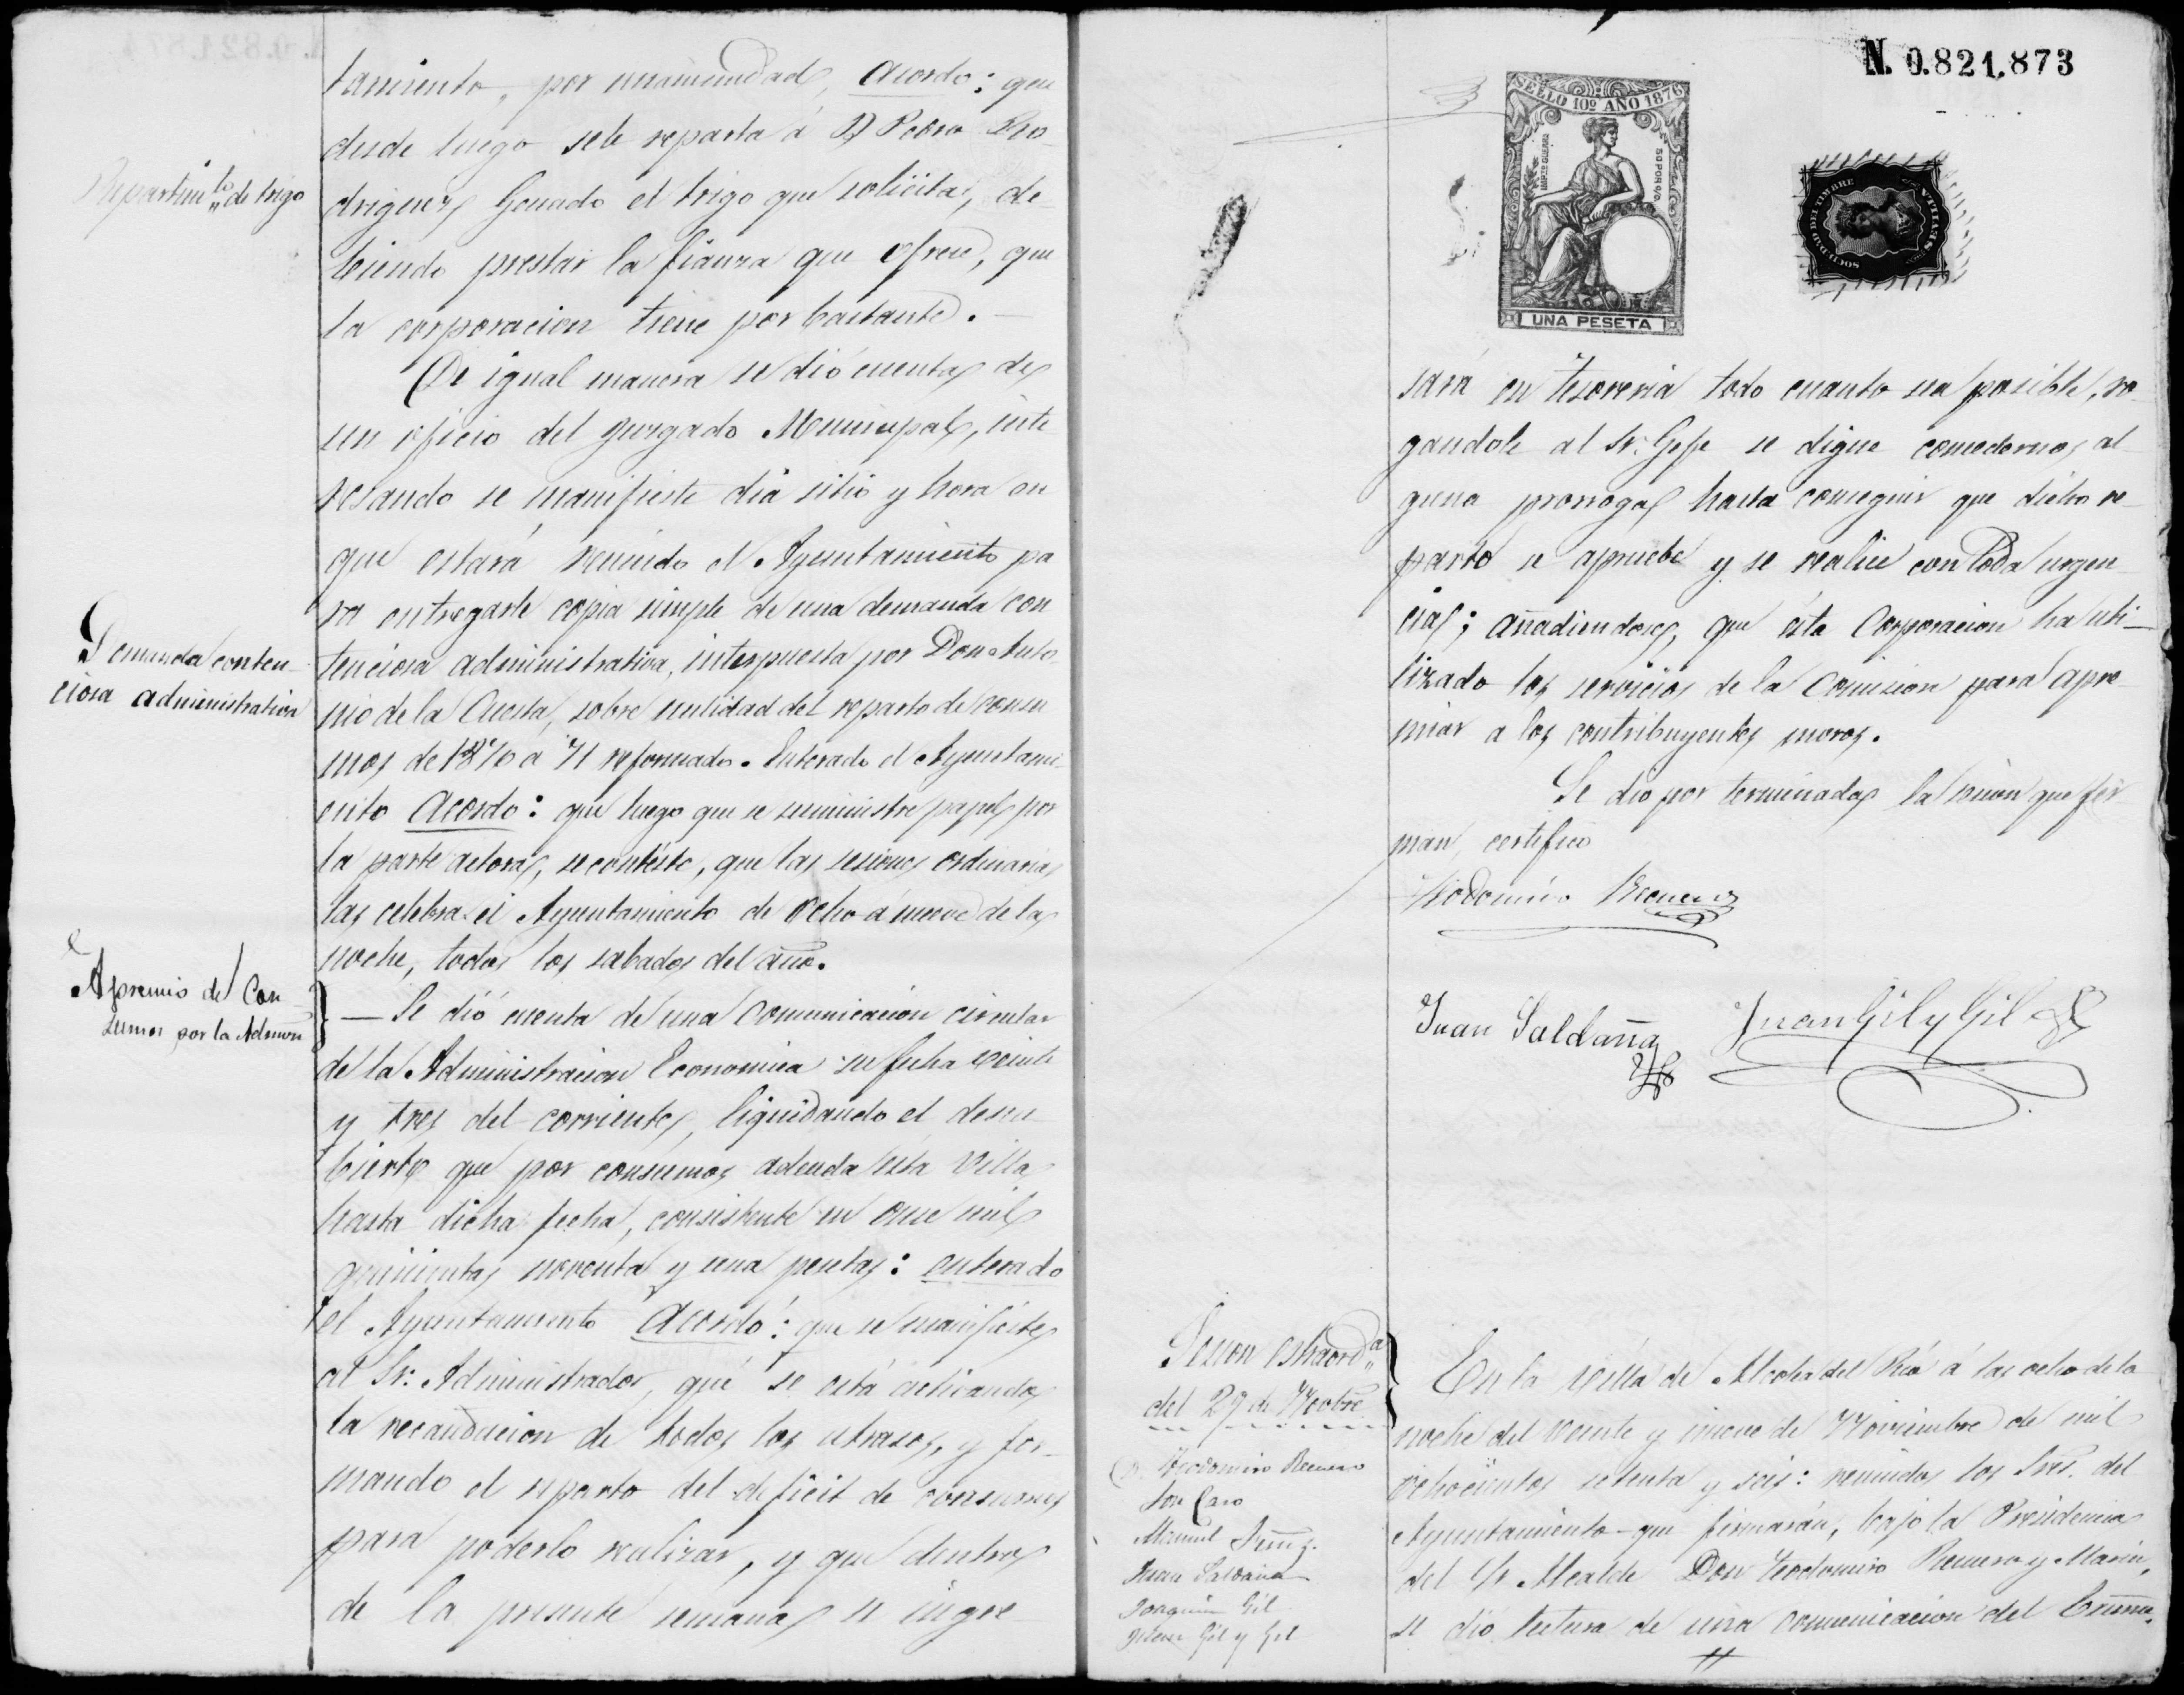 tamiento, por unanimidad, acordo: que
desde luego se le reparta á D Pedro Ro-
driguez Gonzado el trigo que solicita, de-
biendo prestar la fianza que ofrece, que
la corporacion tiene por bastante. —
Repartim.to de trigo
De igual manera se dió cuenta de
un oficio del Juzgado Municipal, inte
resando se manifieste dia sitio y hora en
que estará reunido el Ayuntamiento pa
ra entregarle copia simple de una demanda con
tenciosa administrativa, interpuesta por Don Anto-
nio de la Cuesta, sobre nulidad del reparto de consu
mos de 1870 á 71 reformado. Enterado el Ayuntami-
ento acordo: que luego que se suministre papel por
la parte actora, se conteste, que las sesiones ordinarias
las celebra el Ayuntamiento de ocho á nueve de la
noche, todos los sabados del año.
Demanda conten-
ciosa administrativa
— Se dió cuenta de una comunicación circular
de la Administracion Economica su fecha veinte
y tres del corriente, liquidando el descu-
bierto que por consumos adeuda esta villa
hasta dicha fecha, consistente en once mil
quinientas noventa y una pesetas: enterado
el Ayuntamiento acordó: que se manifieste
al Sr. Administrador, que se está activando
la recaudacion de todos los atrasos, y for-
mando el reparto del deficit de consumos
para poderlo realizar, y que dentro
de la presente semana se ingre
Apremio de Con-
sumos por la Admon
N. 0.821.873
SELLO 10º AÑO 1876
IMPTO GUERRA
50 POR %
UNA PESETA
SOCIEDAD DEL TIMBRE
sará en Tesoreria todo cuanto sea posible, ro-
gandole al Sr. Gefe se digne concedernos al-
guna prorroga hasta conseguir que dicho re-
parto se apruebe y se realice con toda urgen-
cia; añadiendose, que ésta Corporacion ha uti-
lizado los servicios de la Comision para apre-
miar a los contribuyentes moros.
Se dió por terminada la sesion que fir
man, certifico
Teodomiro Recuero
Juan Saldaña
Juan Gil y Gil
Sesion estraord.a
del 29 de Novbre
D. Teodomiro Recuero
Jose Caro
Manuel
Juan Saldaña
Joaquin Gil
Juan Gil y Gil
En la villa de Alcolea del Rio á las ocho de la
noche del veinte y nueve de Noviembre de mil
ochocientos setenta y seis: reunidos los Sres. del
Ayuntamiento que firmarán, bajo la Presidencia
del Sr Alcalde Don Teodomiro Recuero y Marin,
se dió lectura de una comunicacion del